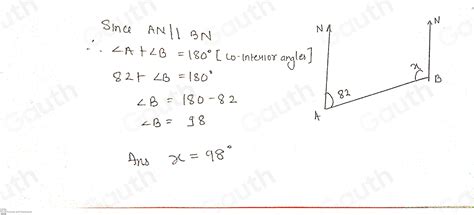 Since AN || BN
∴ ∠A + ∠B = 180° [co-interior angles]
82 + ∠B = 180°
∠B = 180 - 82
∠B = 98
Ans x = 98°
N
N
x
B
82
A
Gauth